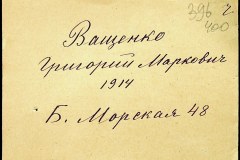 396
400
Ващенко
Григорий Маркович
1914
Б. Морская 48